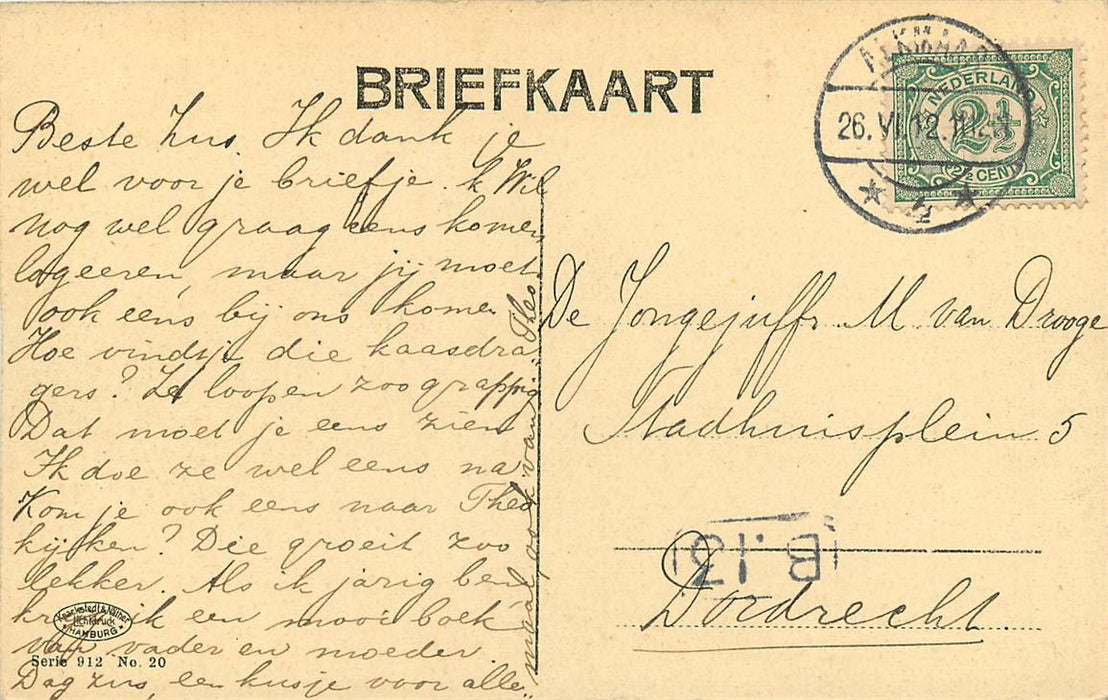 BRIEFKAART
ALKMAAR
26. VI. 12. 11
4
NEDERLAND
2½
2½ CENT
Beste Zus. Ik dank je
wel voor je briefje. k Wil
nog wel graag eens komen
logeeren, maar jij moet
ook eens bij ons komen
Hoe vindtje die kaasdra
gers? Ze loopen zoo grappig.
Dat moet je eens zien
Ik doe ze wel eens na
Kom je ook eens naar Theo
kijken? Die groeit zoo
lekker. Als ik jarig ben
ik een mooi boek
van vader en moeder.
Dag zus, een kusje voor alle
maal ook van Theo.
De Jongejuffr. M van Drooge
Stadhuisplein 5
Dordrecht.
B.13
Knackstedt & Näther
Lichtdruck
HAMBURG
Serie 912 No. 20